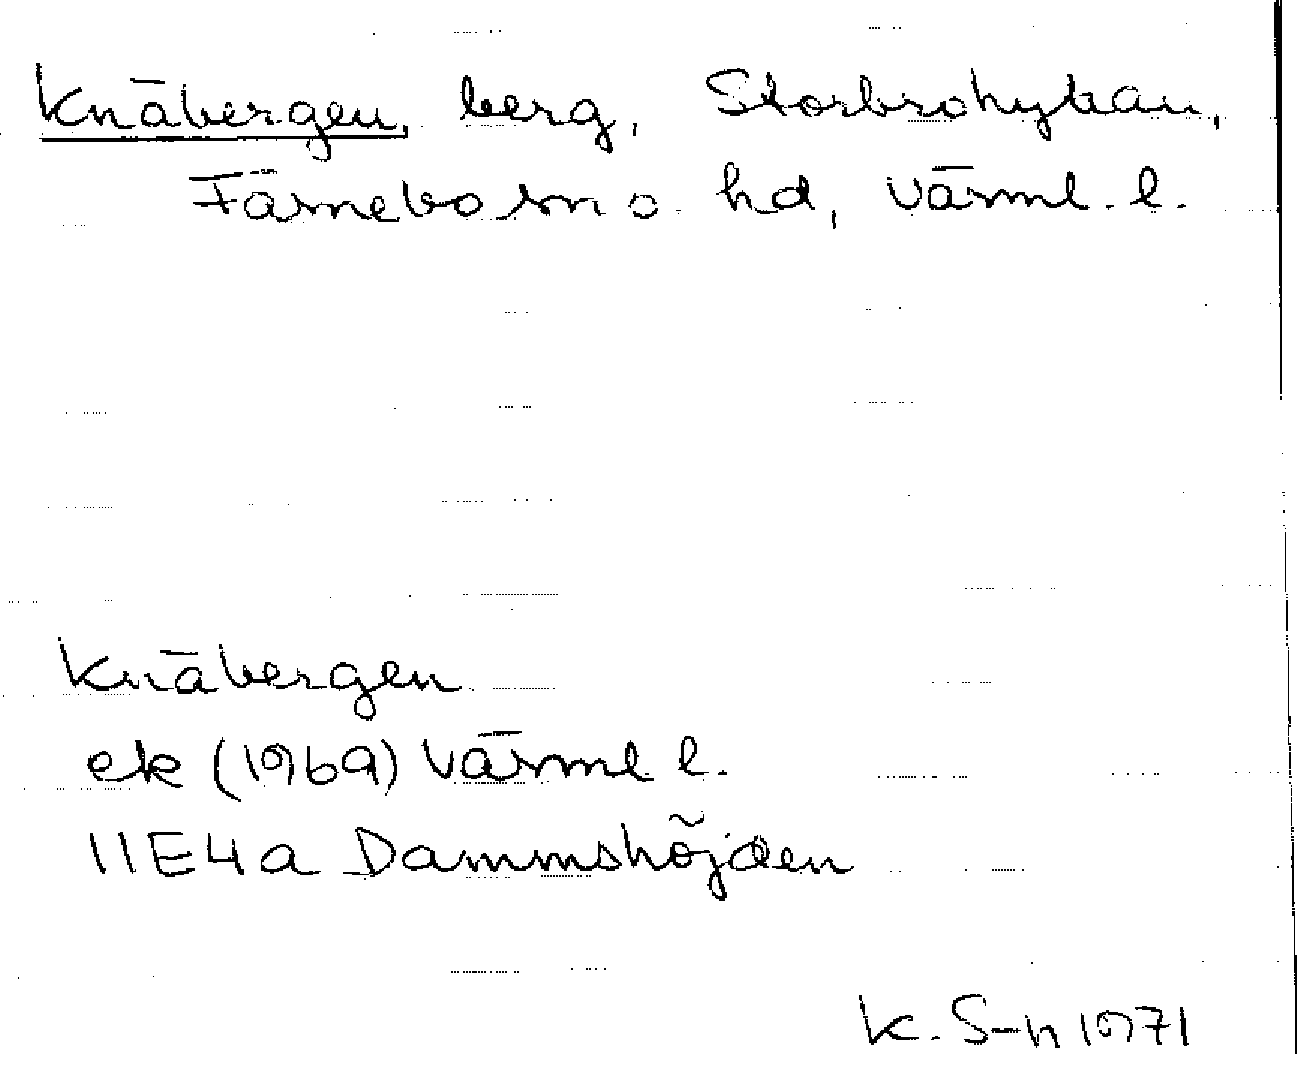 Knäbergen, berg, Storbrohyttan,
Färnebo sn o. hd, Värml. l.
Knäbergen
ek (1969) Värml l.
11E4a Dammshöjden
K. S-n 1971